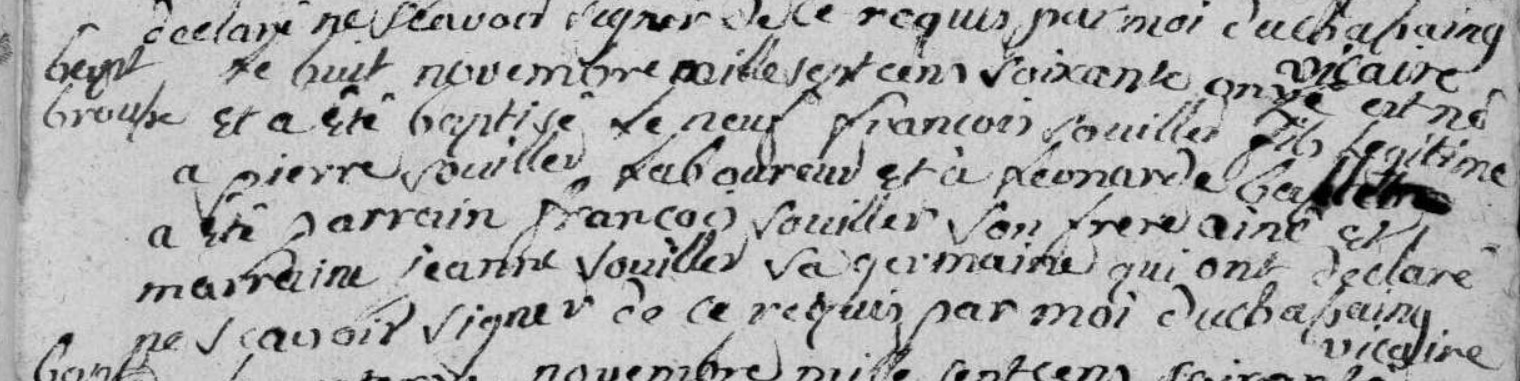 declaré ne scavoir signer de ce requis par moi duchassaing
vicaire
bapt Le huit novembre mille sept cens soixante onze est né
brousse et a été baptisé Le neuf françois souiller fils Legitime
a pierre souiller Laboureur et à Leonarde
a été parrain françois souiller son frere ainé et
marraine jeanne souiller sa germaine qui ont declaré
ne scavoir signer de ce requis par moi duchassaing
vicaire
bapt novembre mille sept cens soixante